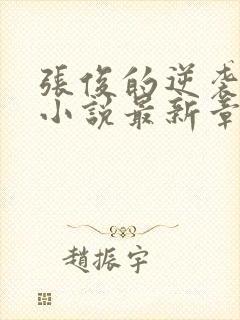 張俊的逆袭
小説最新章
趙振宇